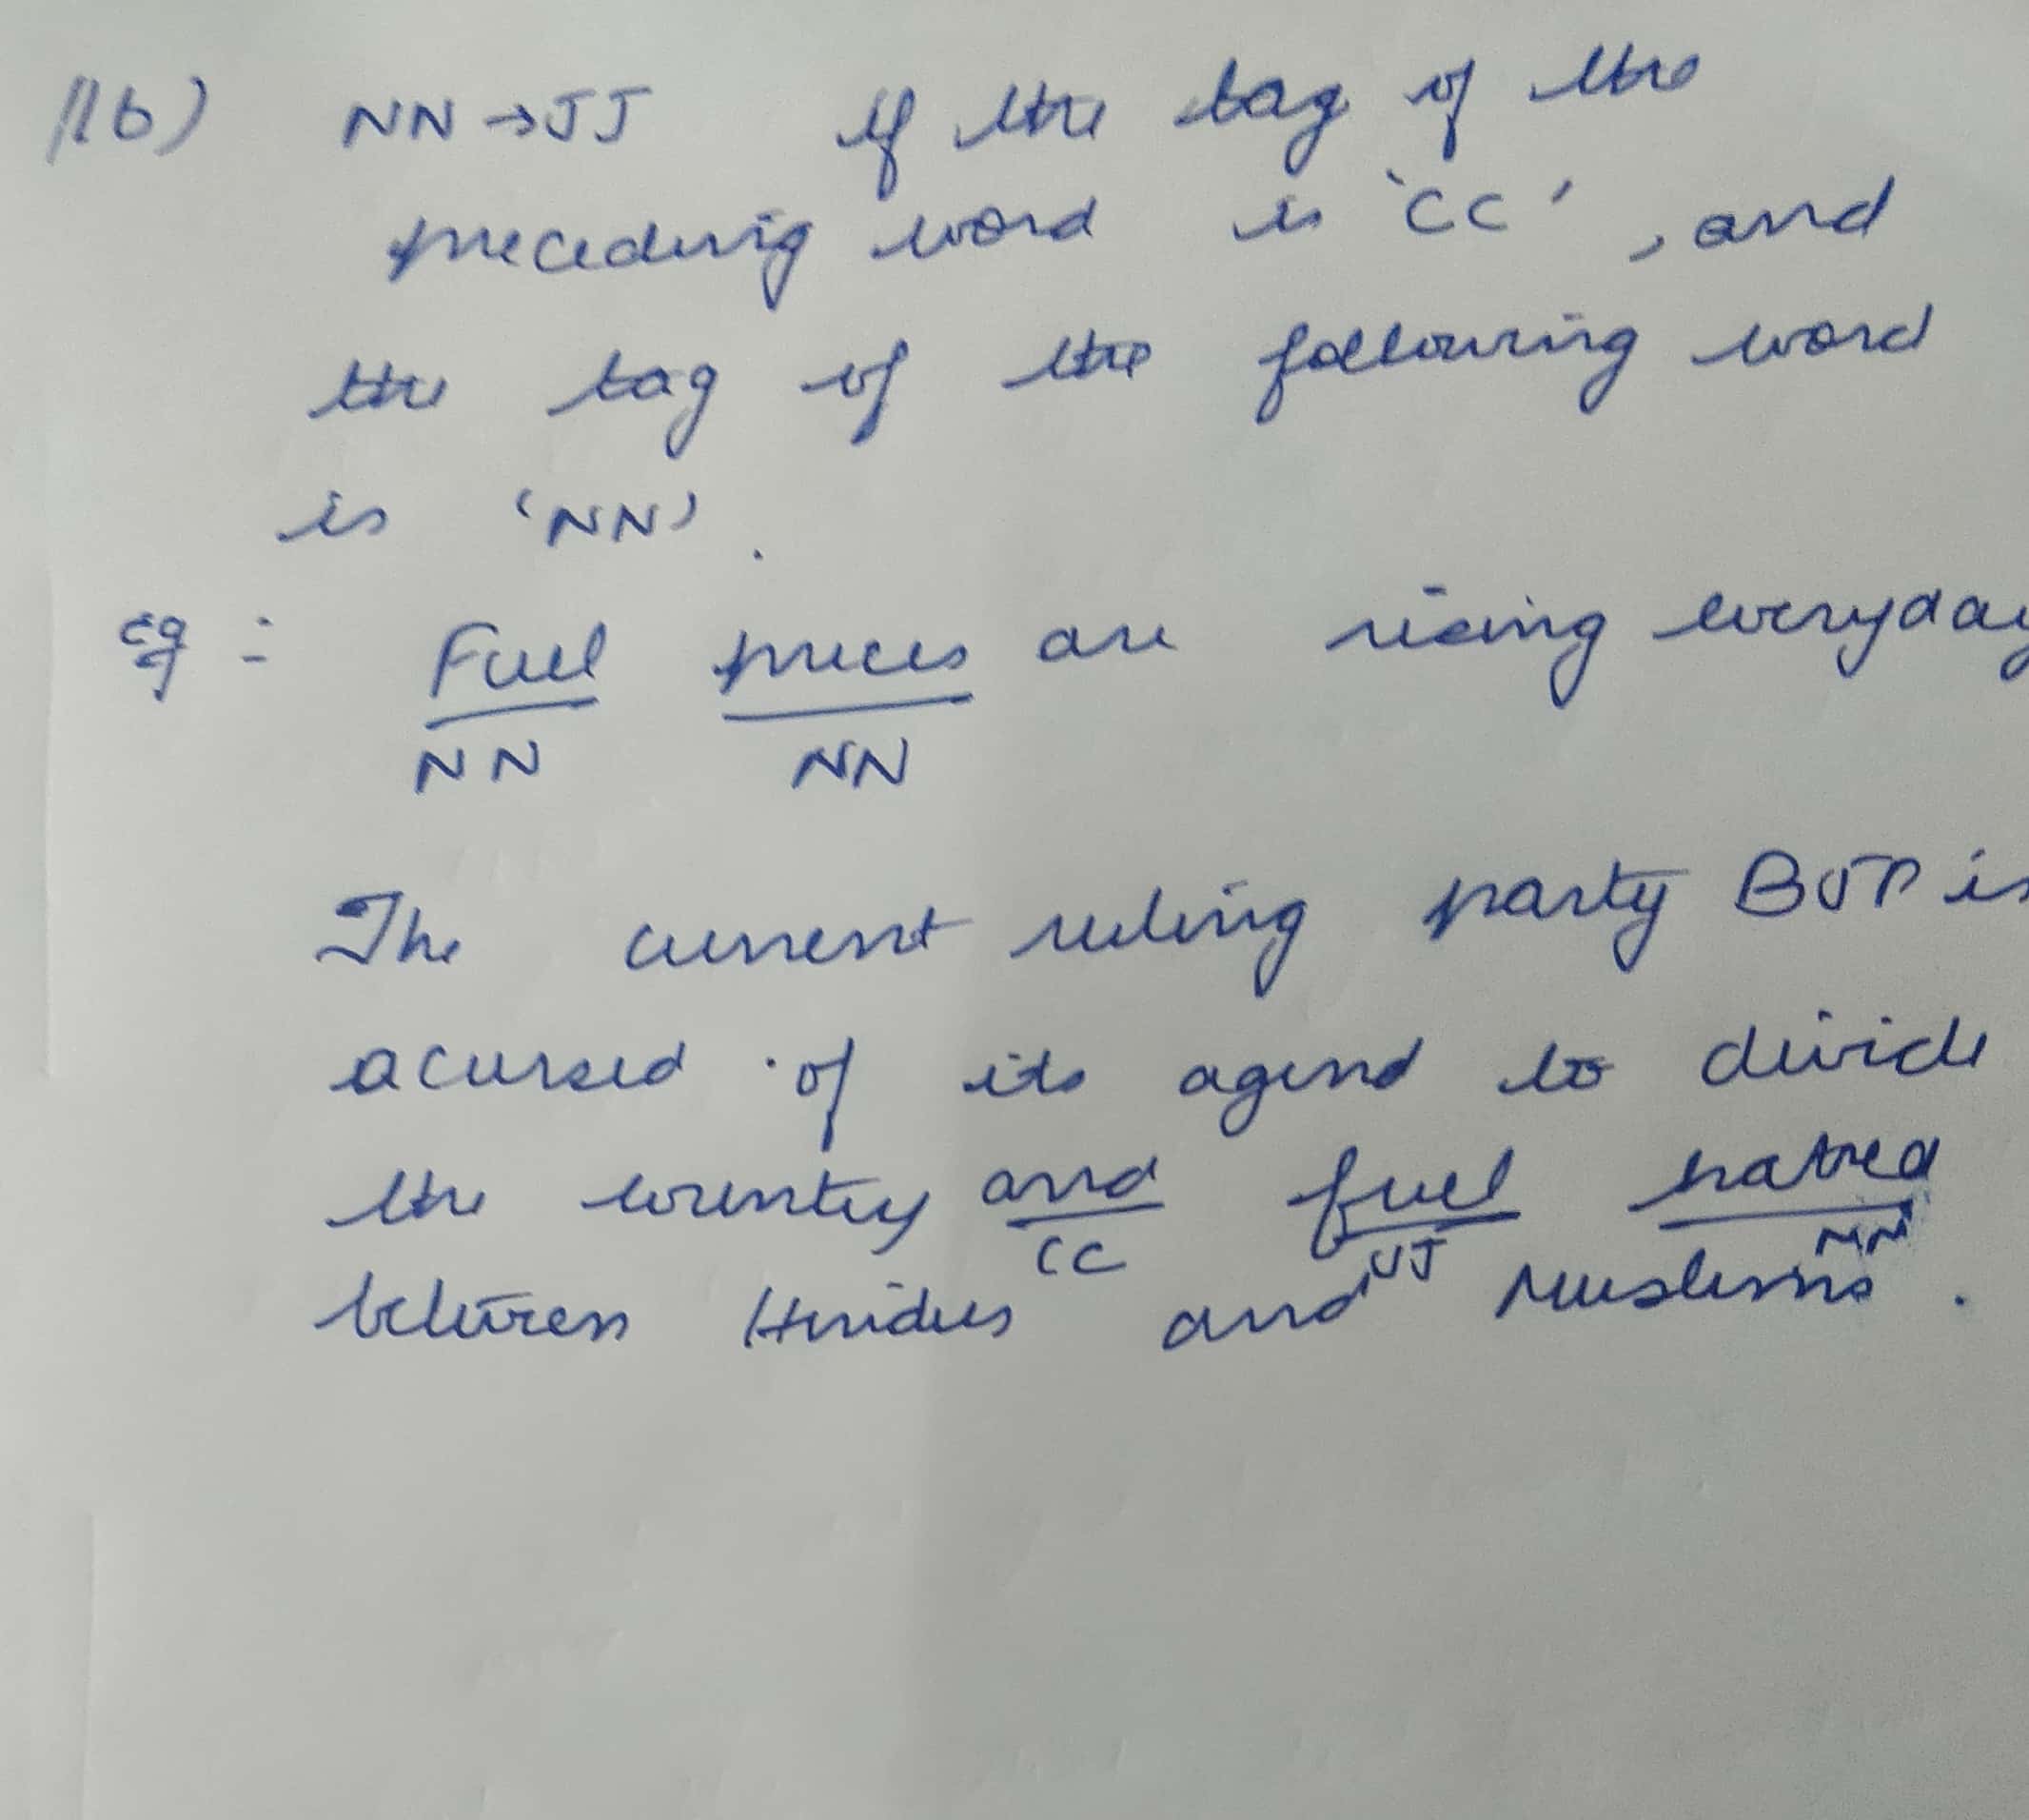 11b) NN → JJ if the tag of the
preceding word is 'CC', and
the tag of the following word
is 'NN'.
eg :- Fuel prices are rising everyday
NN NN
The current ruling party BJP is
acursed of its agend to divide
the country and fuel hatred
CC JJ NN
between Hindus and Muslims.